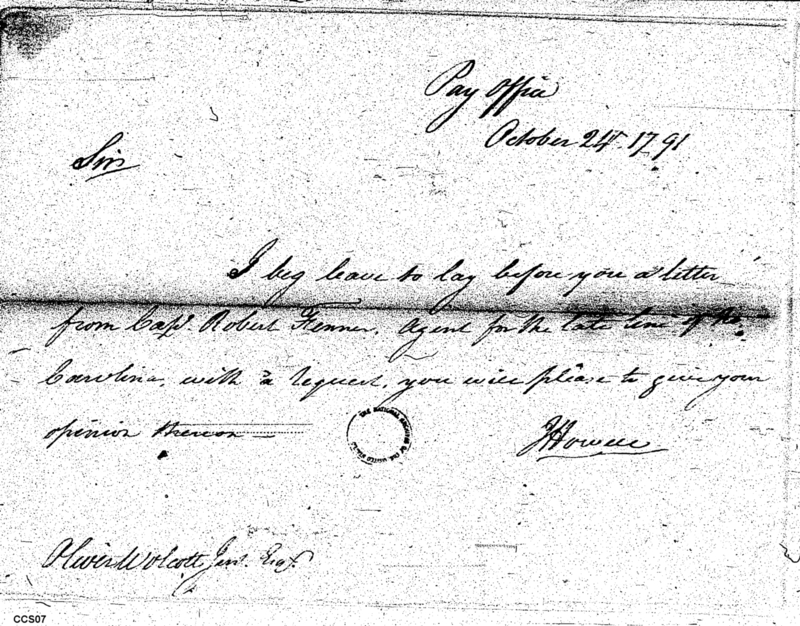 Pay Office
October 24th 1791
Sir
I beg leave to lay before you a letter
from Capt. Robert Fenner, Agent for the late line of No.
Carolina, with a request, you will please to give your
opinion thereon —
THE NATIONAL ARCHIVES OF THE UNITED STATES
JHowell
Oliver Wolcott Junr. Esqr.
CCS07